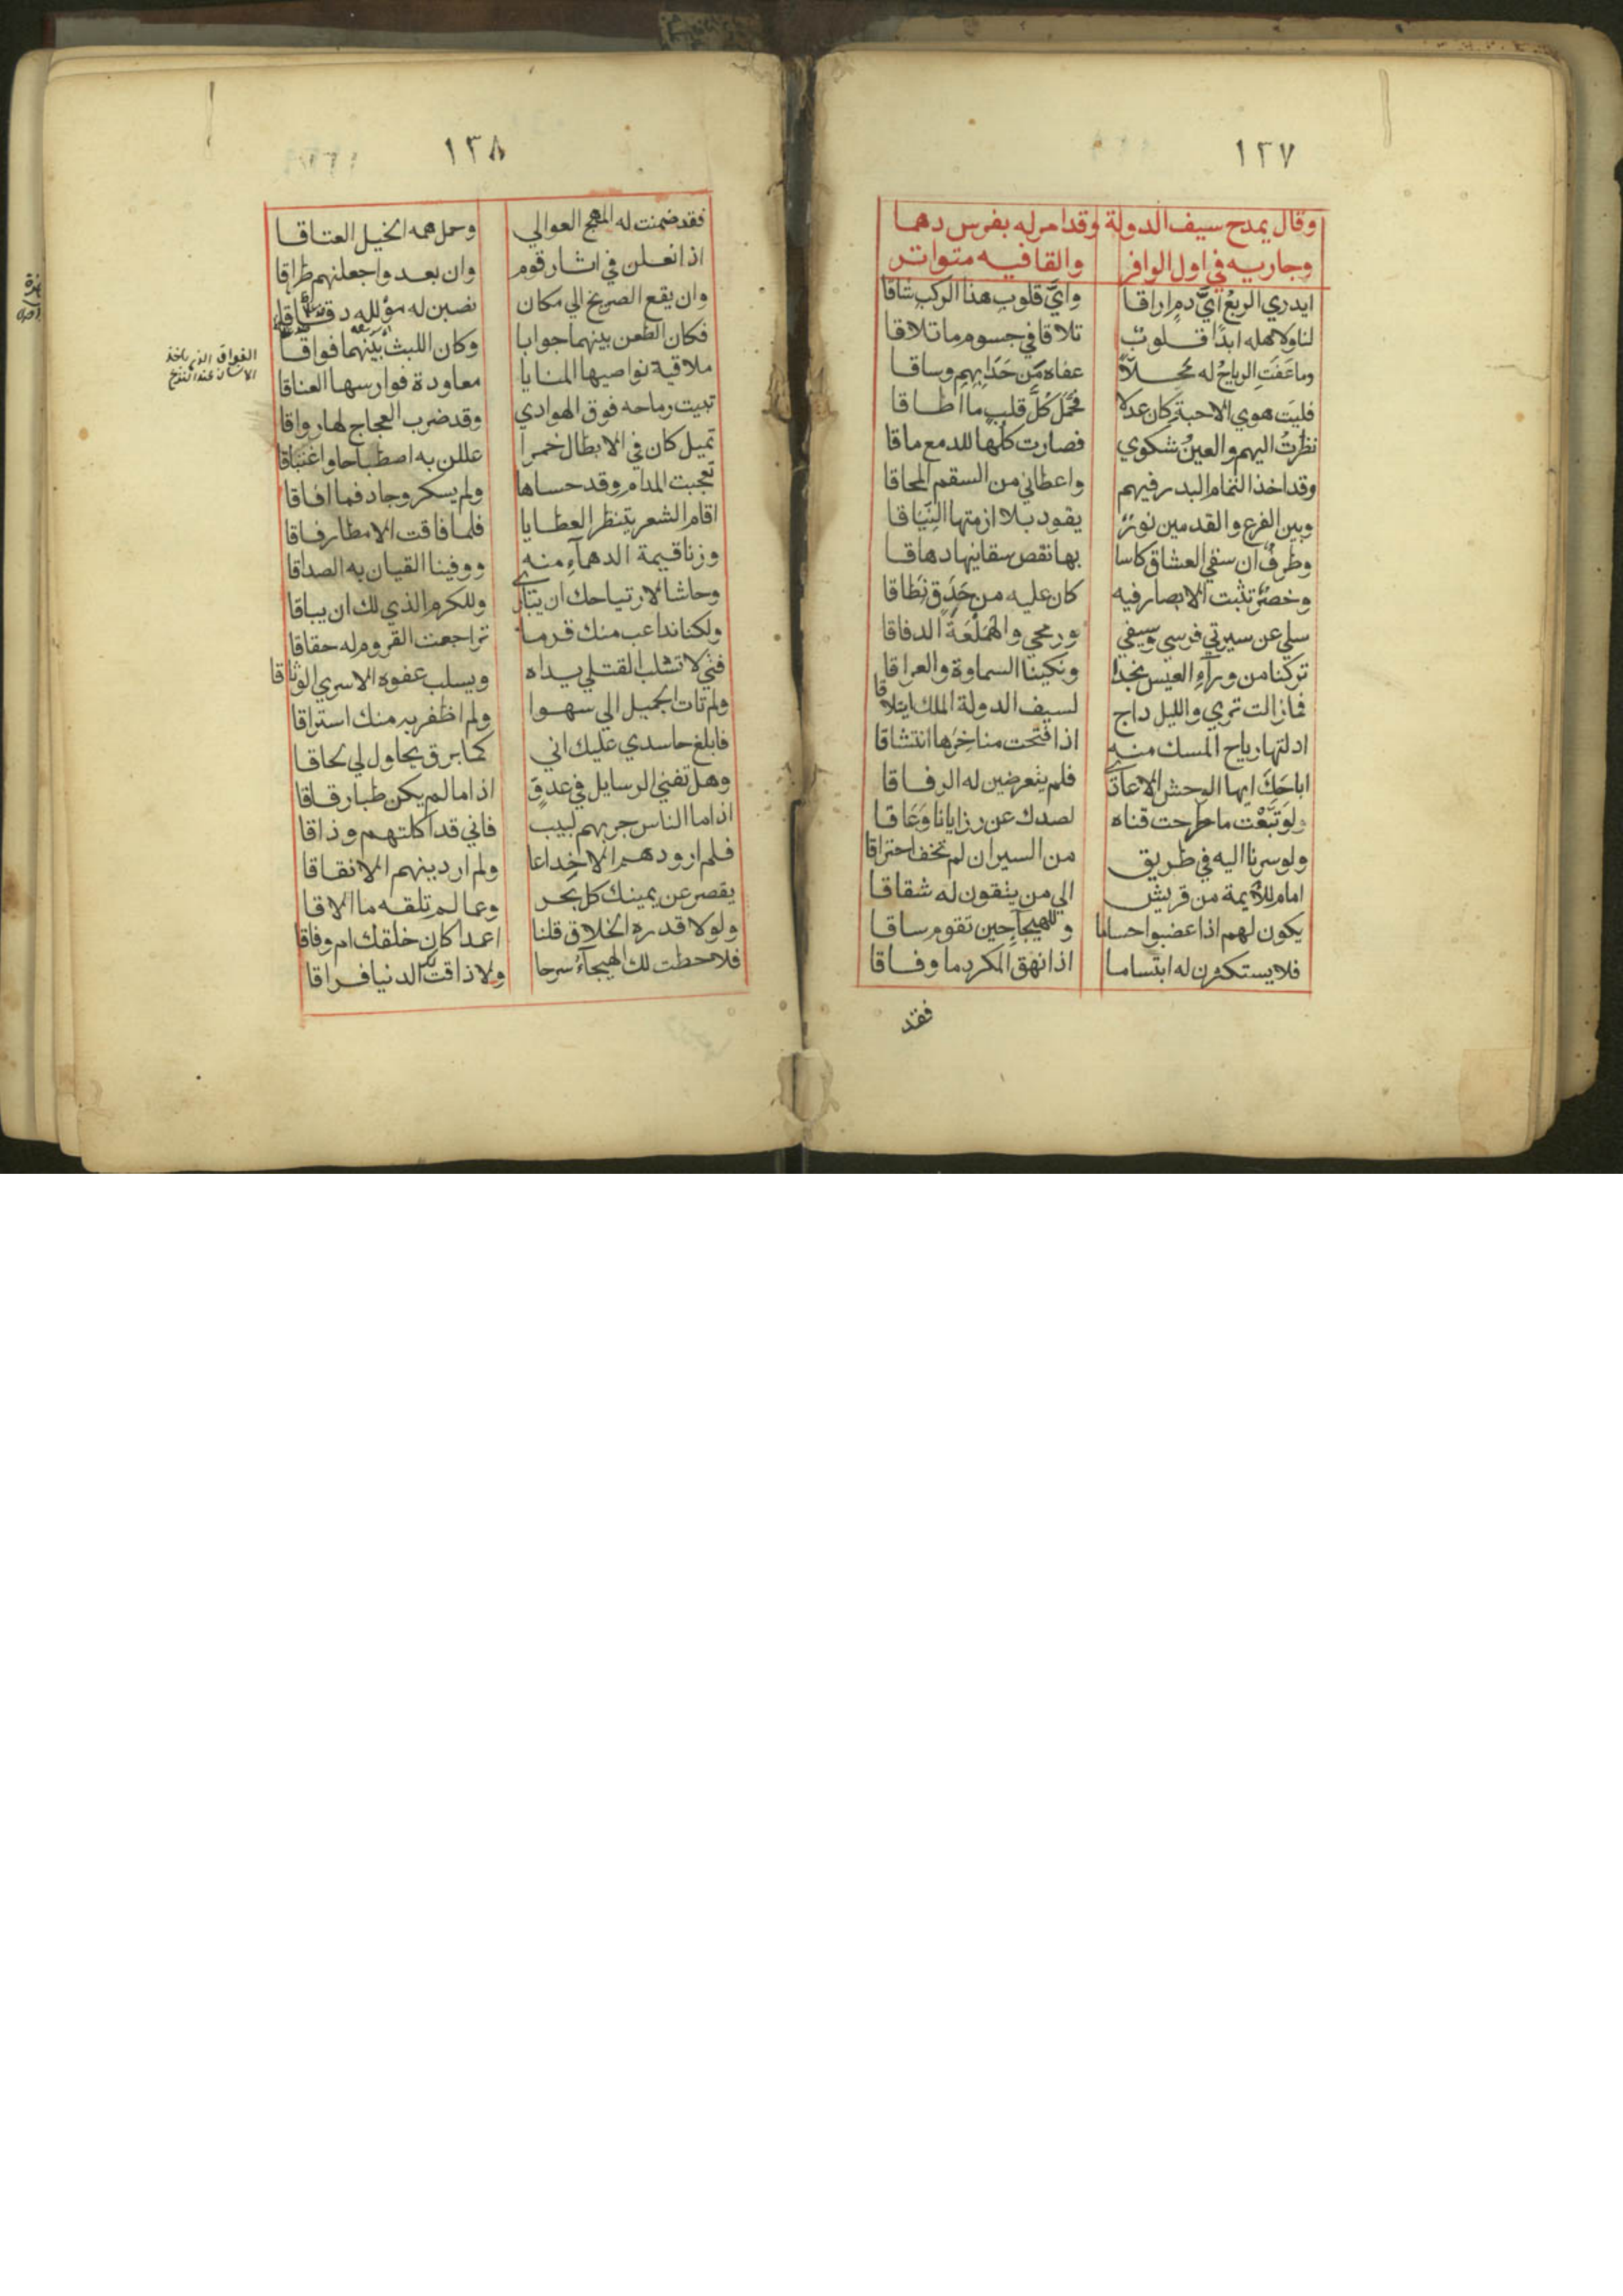 ١٢٧
وقال يمدح سيف الدولة وقد امر له بفرس دهما
وجاريه في اول الوافر والقافيه متواتر
ايدري الربعُ ايَّ دمٍ اراقا وايَّ قلوبِ هذا الركبِ شاقا
لنا ولاهله ابدًا قلوبٌ تلاقا في جسوم ما تلاقا
وما عَفَتِ الرياحُ له محلاً عفاه مَن حَدَا بِهِم وساقا
فليَت هوي الاحبة كان عدلا فحَمَّل كُلَّ قلبٍ ما اطاقا
نظرتُ اليهم والعينُ شكري فصارت كلُها للدمع ماقا
وقد اخذ التمام البدر فيهم واعطاني من السقم المحاقا
وبين الفرع والقدمين نورٌ يقود بلا ازمتها النِّيَاقا
وطرفٌ ان سقي العشاق كاسا بها نقص سقانيها دهاقا
وخصرٌ تثبت الابصار فيه كان عليه من حَدَقٍ نِطاقا
سلي عن سيرتي فرسي وسيفي ورمحي والهَمَلَّعَةَ الدفاقا
تركنا من ورآءِ العيس نجدا ونكبنا السماوة والعراقا
فما زالت تري والليل داج لسيف الدولة الملك ايتلاقا
ادلتها رياح المسك منه اذا فتحت مناخِرُها انتشاقا
اباحَكَ ايها الوحش الاعادي فلم يتعرضين له الرفاقا
ولو تَبَّعْت ما طرحت قناه لصدك عن رزايانا وَعَاقا
ولو سرنا اليه في طريق من السيران لم نخف احتراقا
امام للأيمة من قريش الي من يتقون له شقاقا
يكون لهم اذا غضبوا حساما وللهيجآءِ حين تقوم ساقا
فلا يستكثرن له ابتساما اذا نهق المكر دما وفاقا
فقد
١٣٨
فقد ضمنت له المهج العوالي وحمل همه الخيل العتاقا
اذا نعلن في اثار قوم وان بعدوا جعلنهم طراقا
وان يقع الصريخ الي مكان نصبن له مؤلله دقاقا
فكان الطعن بينهما جوابا وكان اللبث بينهما فواقا
الفواق الذي ياخذ
الانسان عند النزع
ملاقية نواصيها المنايا معاودة فوارسها العناقا
تبيت رماحه فوق الهوادي وقد ضرب العجاج لها رواقا
تميل كان في الابطال خمرا عللن به اصطباحا واغتباقا
تعجبت المدام وقد حساها ولم يسكر وجاد فما افاقا
اقام الشعر ينتظر العطايا فلما فاقت الامطار فاقا
وزنا قيمة الدهمآءِ منه ووفينا القيان به الصداقا
وحاشا لارتياحك ان يباري وللكرم الذي لك ان يباقا
ولكنا نداعب منك قرما تراجعت القروم له حقاقا
فتي لا تسلب القتلي يداه ويسلب عفوه الاسري الوثاقا
ولم تات الجميل الي سهوا ولم اظفر به منك استراقا
فابلغ حاسدي عليك اني كبا برق يحاول لي لحاقا
وهل تغني الرسايل في عدوٍّ اذا ما لم يكن ظبا رقاقا
اذا ما الناس جربهم لبيب فاني قد اكلتهم وذاقا
فلم ار ودهم الا خداعا ولم ار دينهم الا نفاقا
يقصر عن يمينك كل بحر وعما لم تلقه ما الاقا
ولولا قدره الخلاق قلنا اعمدا كان خلقك ام وفاقا
فلا حطت لك الهيجآءُ سرجا ولا ذاقت لك الدنيا فراقا